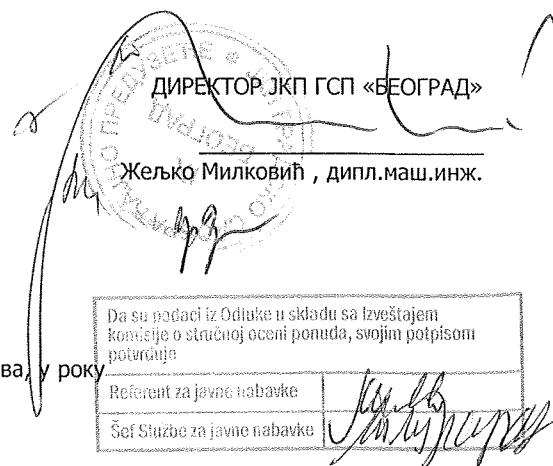 ДИРЕКТОР ЈКП ГСП «БЕОГРАД»
Жељко Милковић , дипл.маш.инж.
БЕОГРАД
Da su podaci iz Odluke u skladu sa Izveštajem
komisije o stručnoj oceni ponuda, svojim potpisom
potvrđuje
ва, у року
Referent za javne nabavke
Šef Službe za javne nabavke